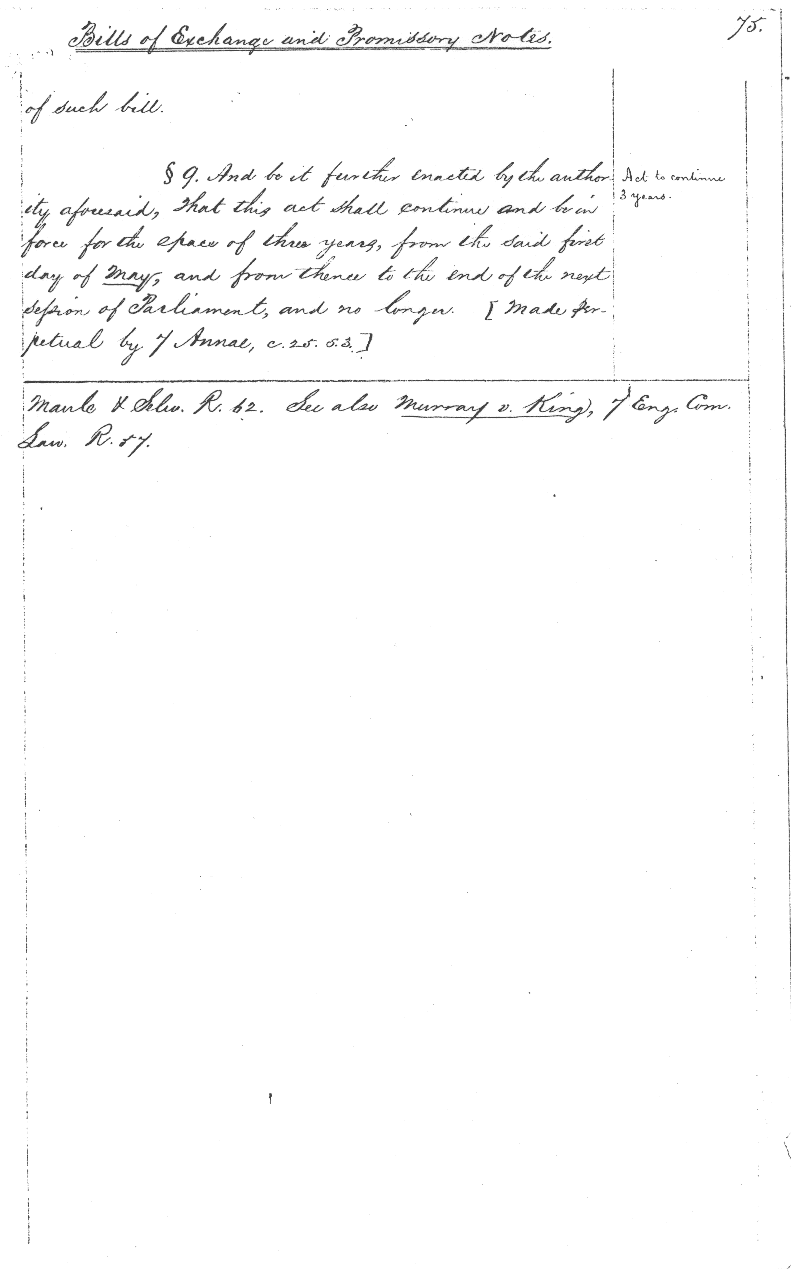 75.
Bills of Exchange and Promissory Notes.
of such bill.
§ 9. And be it further enacted by the author
ity aforesaid, That this act shall continue and be in
force for the space of three years, from the said first
day of May, and from thence to the end of the next
session of Parliament, and no longer. [Made per-
petual by 7 Annae, c. 25. s. 3.]
Act to continue
3 years.
Maule & Selw. R. 62. See also Murray v. King, 7 Eng. Com.
Law. R. 57.